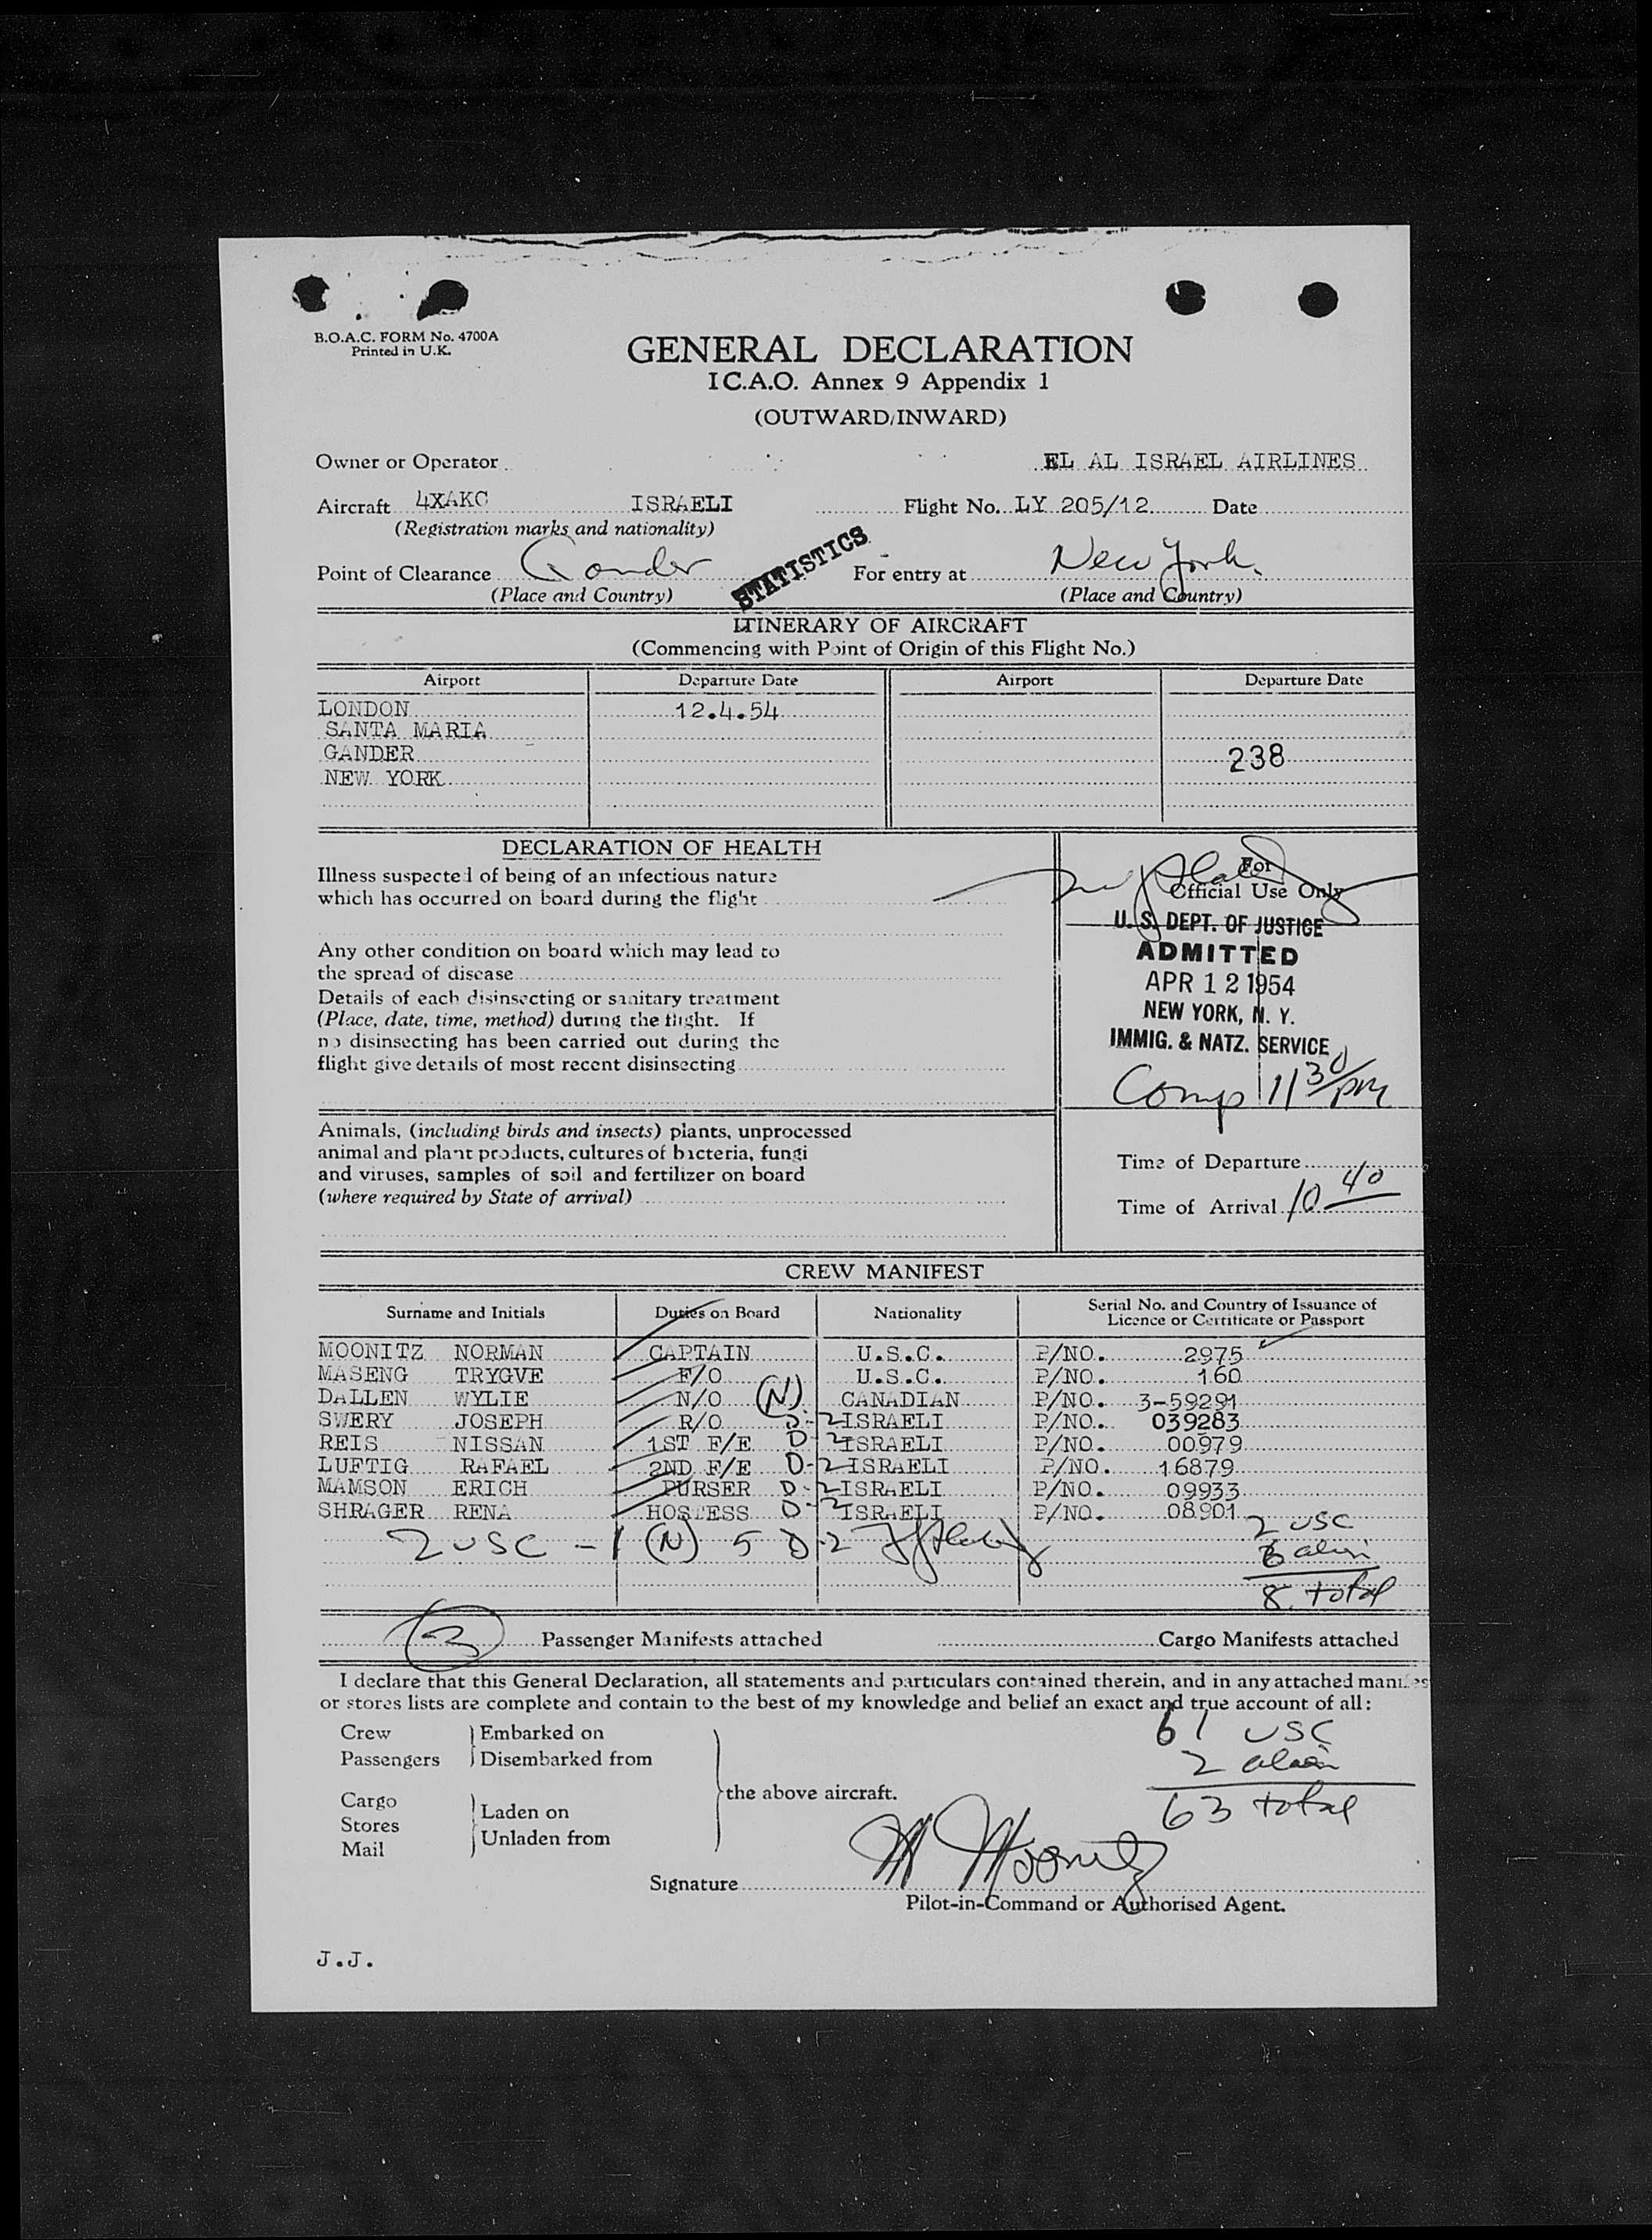 B.O.A.C. FORM No. 4700A
Printed in U.K.
GENERAL DECLARATION
I C.A.O. Annex 9 Appendix 1
(OUTWARD/INWARD)
Owner or Operator EL AL ISRAEL AIRLINES
Aircraft 4XAKC ISRAELI Flight No. LY 205/12 Date
(Registration marks and nationality)
STATISTICS
Point of Clearance Gander For entry at New York.
(Place and Country) (Place and Country)
ITINERARY OF AIRCRAFT
(Commencing with Point of Origin of this Flight No.)
Airport Departure Date Airport Departure Date
LONDON 12.4.54
SANTA MARIA
GANDER 238
NEW YORK
DECLARATION OF HEALTH
Illness suspected of being of an infectious nature
which has occurred on board during the flight
Any other condition on board which may lead to
the spread of disease
Details of each disinsecting or sanitary treatment
(Place, date, time, method) during the flight. If
no disinsecting has been carried out during the
flight give details of most recent disinsecting
For
Official Use Only
U. S. DEPT. OF JUSTICE
ADMITTED
APR 12 1954
NEW YORK, N. Y.
IMMIG. & NATZ. SERVICE
Comp 11 30/PM
Animals, (including birds and insects) plants, unprocessed
animal and plant products, cultures of bacteria, fungi
and viruses, samples of soil and fertilizer on board
(where required by State of arrival)
Time of Departure
Time of Arrival 10 40
CREW MANIFEST
Surname and Initials Duties on Board Nationality Serial No. and Country of Issuance of
Licence or Certificate or Passport
MOONITZ NORMAN CAPTAIN U.S.C. P/NO. 2975
MASENG TRYGVE F/O U.S.C. P/NO. 160
DALLEN WYLIE N/O (N) CANADIAN P/NO. 3-59291
SWERY JOSEPH R/O D-2 ISRAELI P/NO. 039283
REIS NISSAN 1ST F/E D-2 ISRAELI P/NO. 00979
LUFTIG RAFAEL 2ND F/E D-2 ISRAELI P/NO. 16879
MAMSON ERICH PURSER D-2 ISRAELI P/NO. 09933
SHRAGER RENA HOSTESS D-2 ISRAELI P/NO. 08901
2 USC - 1 (N) 5 D-2
2 USC
6 alien
8 total
3 Passenger Manifests attached Cargo Manifests attached
I declare that this General Declaration, all statements and particulars contained therein, and in any attached manifes
or stores lists are complete and contain to the best of my knowledge and belief an exact and true account of all:
Crew Embarked on
Passengers Disembarked from
the above aircraft.
Cargo
Stores Laden on
Mail Unladen from
61 USC
2 alien
63 total
Signature N Moonitz
Pilot-in-Command or Authorised Agent.
J.J.